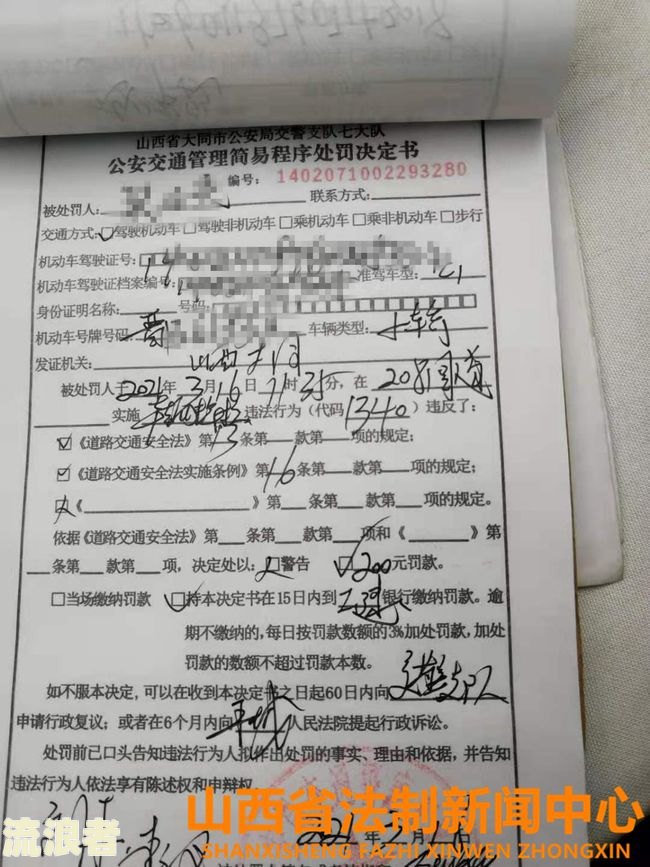 山西省大同市公安局交警支队七大队
公安交通管理简易程序处罚决定书
编号：1402071002293280
被处罚人： 联系方式：
交通方式：☑驾驶机动车□驾驶非机动车□乘机动车□乘非机动车□步行
机动车驾驶证号：
机动车驾驶证档案编号： 准驾车型：C1
身份证明名称： 号码：
机动车号牌号码：晋 车辆类型：小轿
发证机关：山西大同
被处罚人于2021年3月16日11时35分，在208国道
实施 违法行为（代码1340）违反了：
☑《道路交通安全法》第13条 第 款第 项的规定；
☑《道路交通安全法实施条例》第16条第 款第 项的规定；
□《 》第 条第 款第 项的规定。
依据《道路交通安全法》第 条第 款第 项和《 》第
条第 款第 项，决定处以：□警告 ☑200元罚款。
□当场缴纳罚款 ☑持本决定书在15日内到 银行缴纳罚款。逾
期不缴纳的，每日按罚款数额的3%加处罚款，加处
罚款的数额不超过罚款本数。
如不服本决定，可以在收到本决定书之日起60日内向交警支队
申请行政复议；或者在6个月内向平城人民法院提起行政诉讼。
处罚前已口头告知违法行为人拟作出处罚的事实、理由和依据，并告知
违法行为人依法享有陈述权和申辩权。
山西省法制新闻中心
流浪者
2021年3月
SHANXISHENG FAZHI XINWEN ZHONGXIN